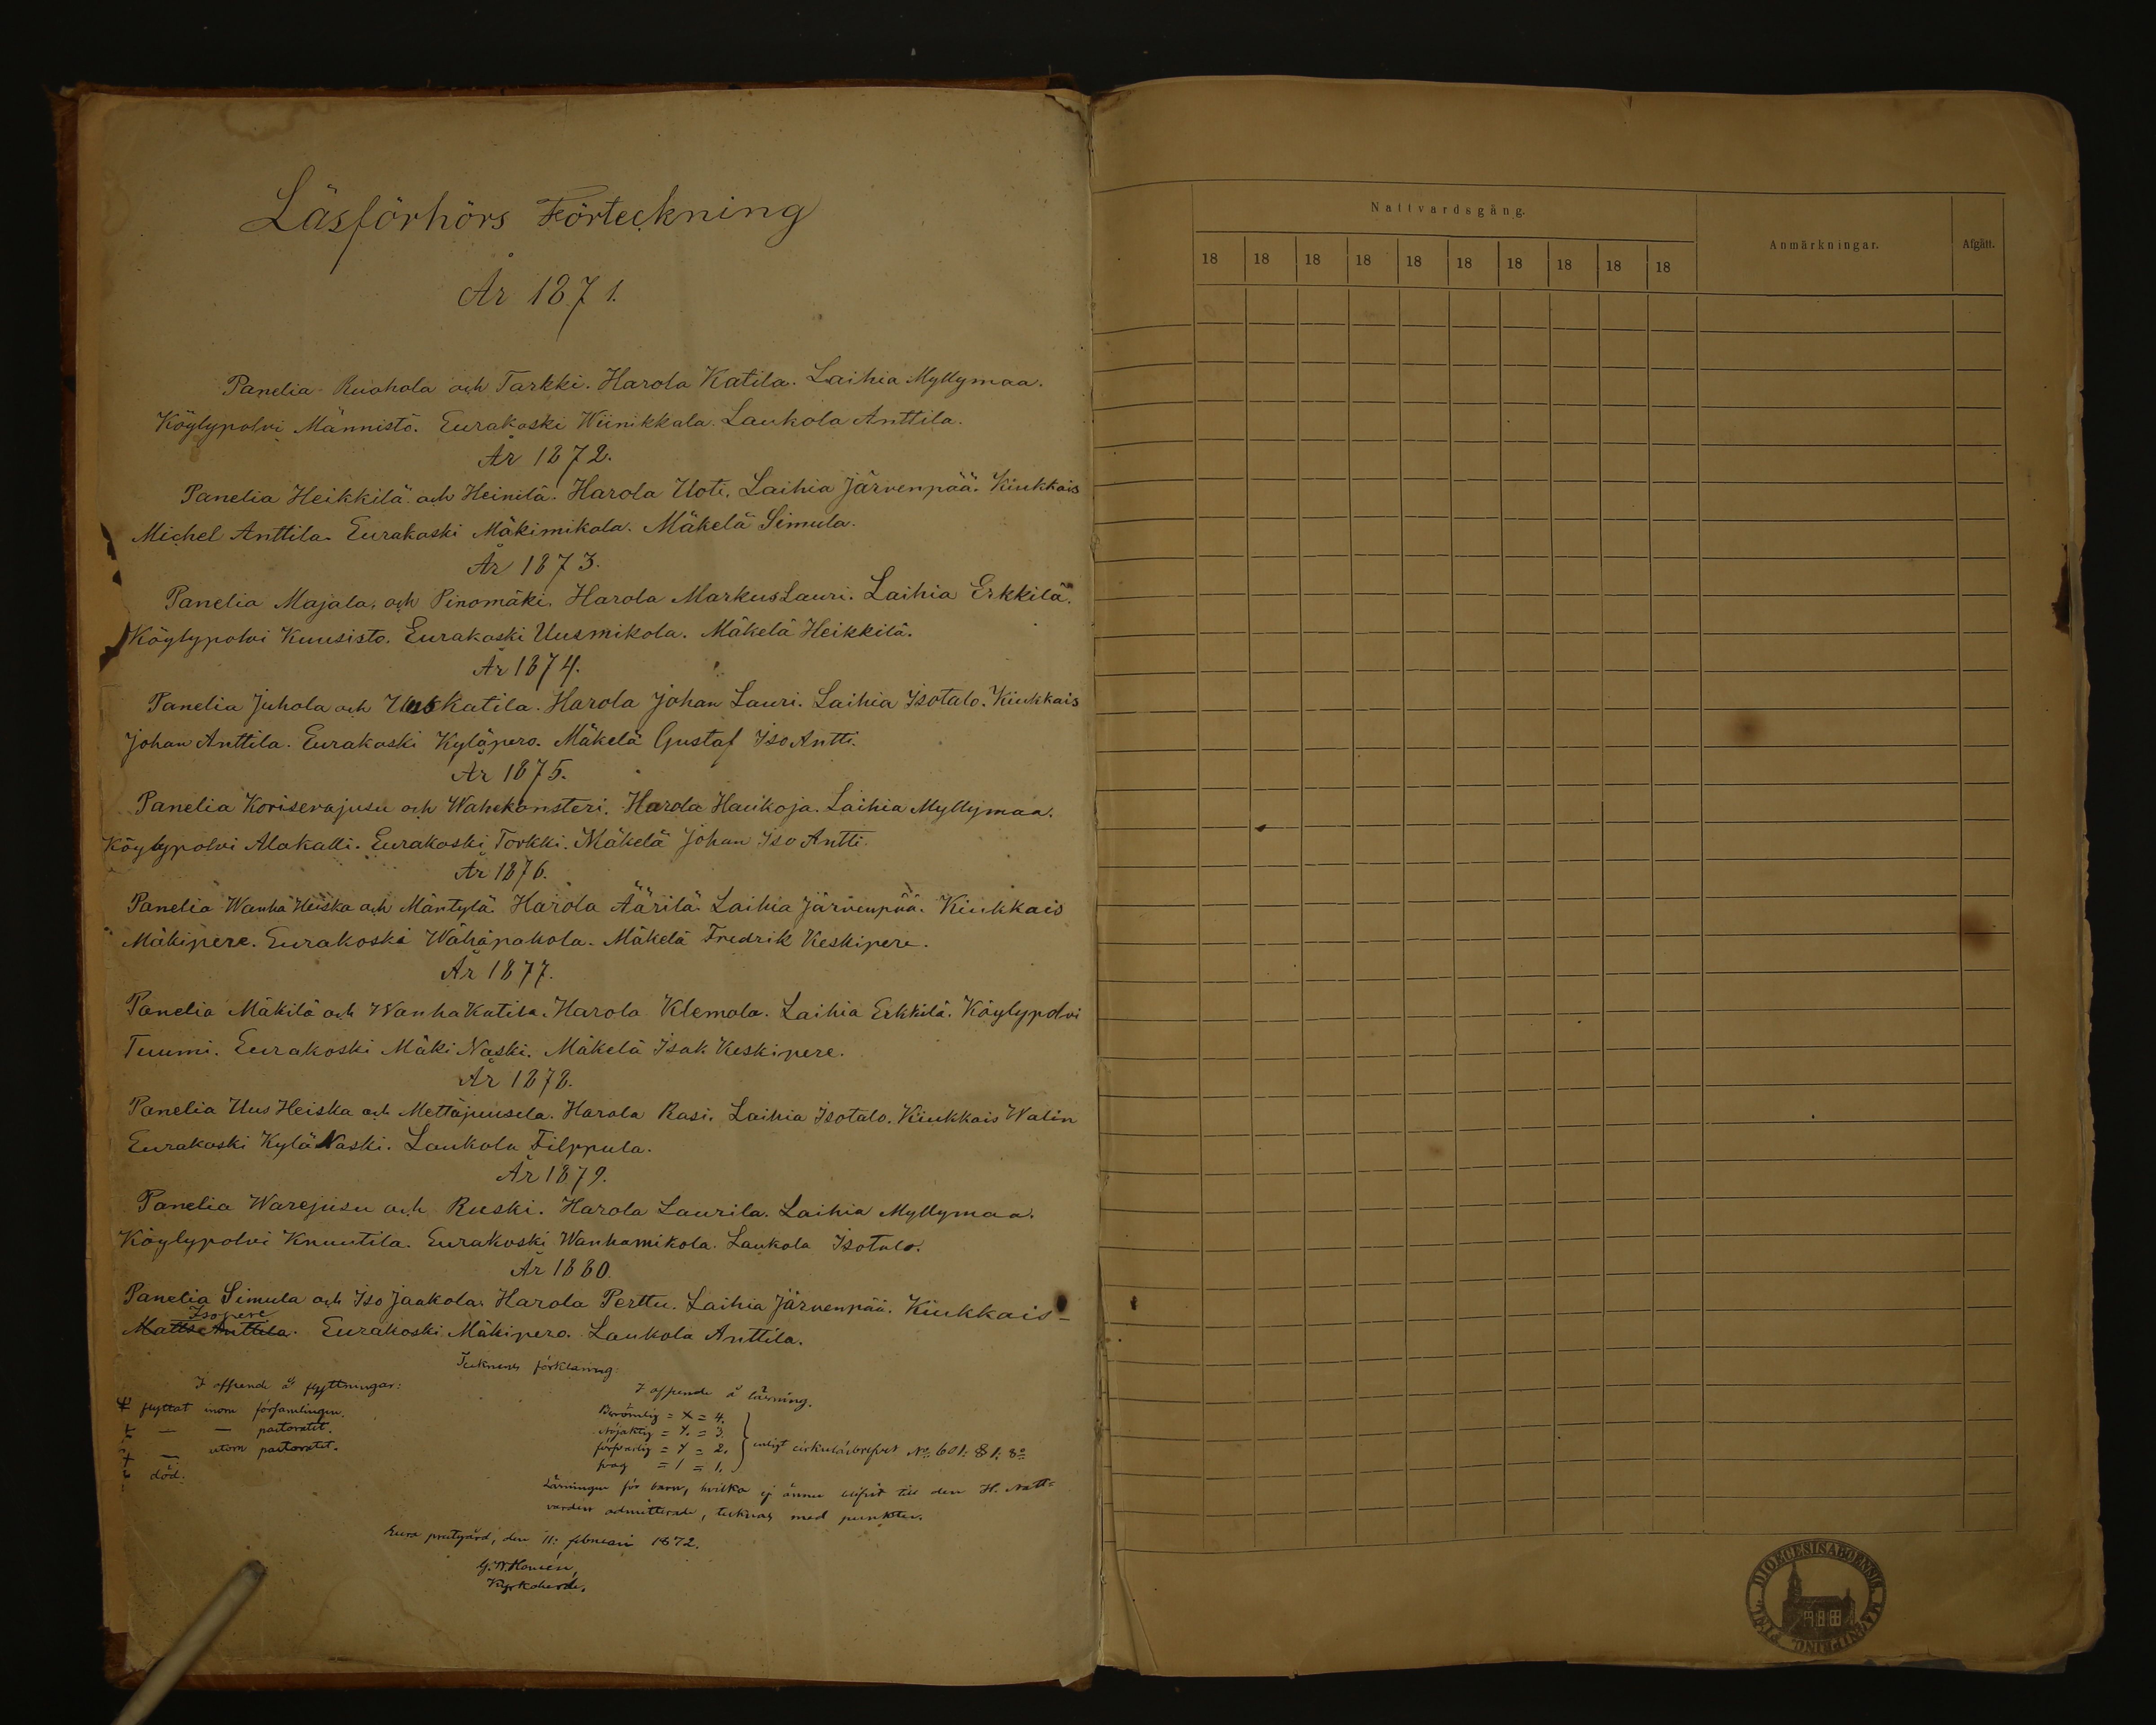 Läsförhörs Förteckning
År 1871.
Panelia Ruohola och Tarkki. Harola Katila. Laihia Myllymaa.
Köylypolvi Männistö. Eurakoski Wiinikkala. Laukola Anttila.
År 1872.
Panelia Heikkilä och Heinilä. Harola Uoti. Laihia Järvenpää. Kiukkais
Michel Anttila. Eurakoski Mäkimikola. Mäkelä Simula.
År 1873.
Panelia Majala, och Pinomäki. Harola Markus Lauri. Laihia Erkkilä.
Köylypolvi Kuusisto. Eurakoski Uusmikola. Mäkelä Heikkilä.
År 1874.
Panelia Juhola och Uus Katila. Harola Johan Lauri. Laihia Isotalo. Kiukkais
Johan Anttila. Eurakoski Kyläpero. Mäkelä Gustaf Iso Antti.
År 1875.
Panelia Korisevajusu och Wahekonsteri. Harola Haukoja. Laihia Myllymaa.
Köylypolvi Alakalli. Eurakoski Torkki. Mäkelä Johan Iso Antti.
År 1876.
Panelia Wanha Heiska och Mäntylä. Harola Äärilä. Laihia Järvenpää. Kiukkais
Mäkipere. Eurakoski Wähäpakola. Mäkelä Fredrik Keskipere.
År 1877.
Panelia Mäkilä och Wanha Katila. Harola Klemola. Laihia Erkkilä. Köylypolvi
Tuumi. Eurakoski Mäki Naski. Mäkelä Isak Keskipere.
År 1878.
Panelia Uus Heiska och Mettäjuusela. Harola Rasi. Laihia Isotalo. Kiukkais Walin
Eurakoski Kylä Naski. Laukola Filppula.
År 1879.
Panelia Warejusu och Ruski. Harola Laurila. Laihia Myllymaa.
Köylypolvi Knuutila. Eurakoski Wanhamikola. Laukola Isotalo.
År 1880.
Panelia Simula och Iso Jaakola. Harola Perttu. Laihia Järvenpää. Kiukkais-
Isopere
Matts Anttila. Eurakoski Mäkipero. Laukola Anttila.
förklaring:
I afseende å flyttningar:
flyttat inom församlingen.
— — pastoratet.
— utom pastoratet.
död.
I afseende å läsning.
Berömlig = X = 4.
Nöjaktig = = 3.
försvarlig = = 2.
svag = / = 1.
enligt cirkulärbrefvet No 601: 81: 8o
Läsningen för barn, hvilka ej ännu blifvit till den H. Natt-
varden admitterade, tecknas med punkter.
Eura prestgård, den 11: februari 1872.
Kyrkoherde.
Nattvardsgång.
Anmärkningar.
Afgått.
18 18 18 18 18 18 18 18 18 18
DIOECESIS ABOENSIS